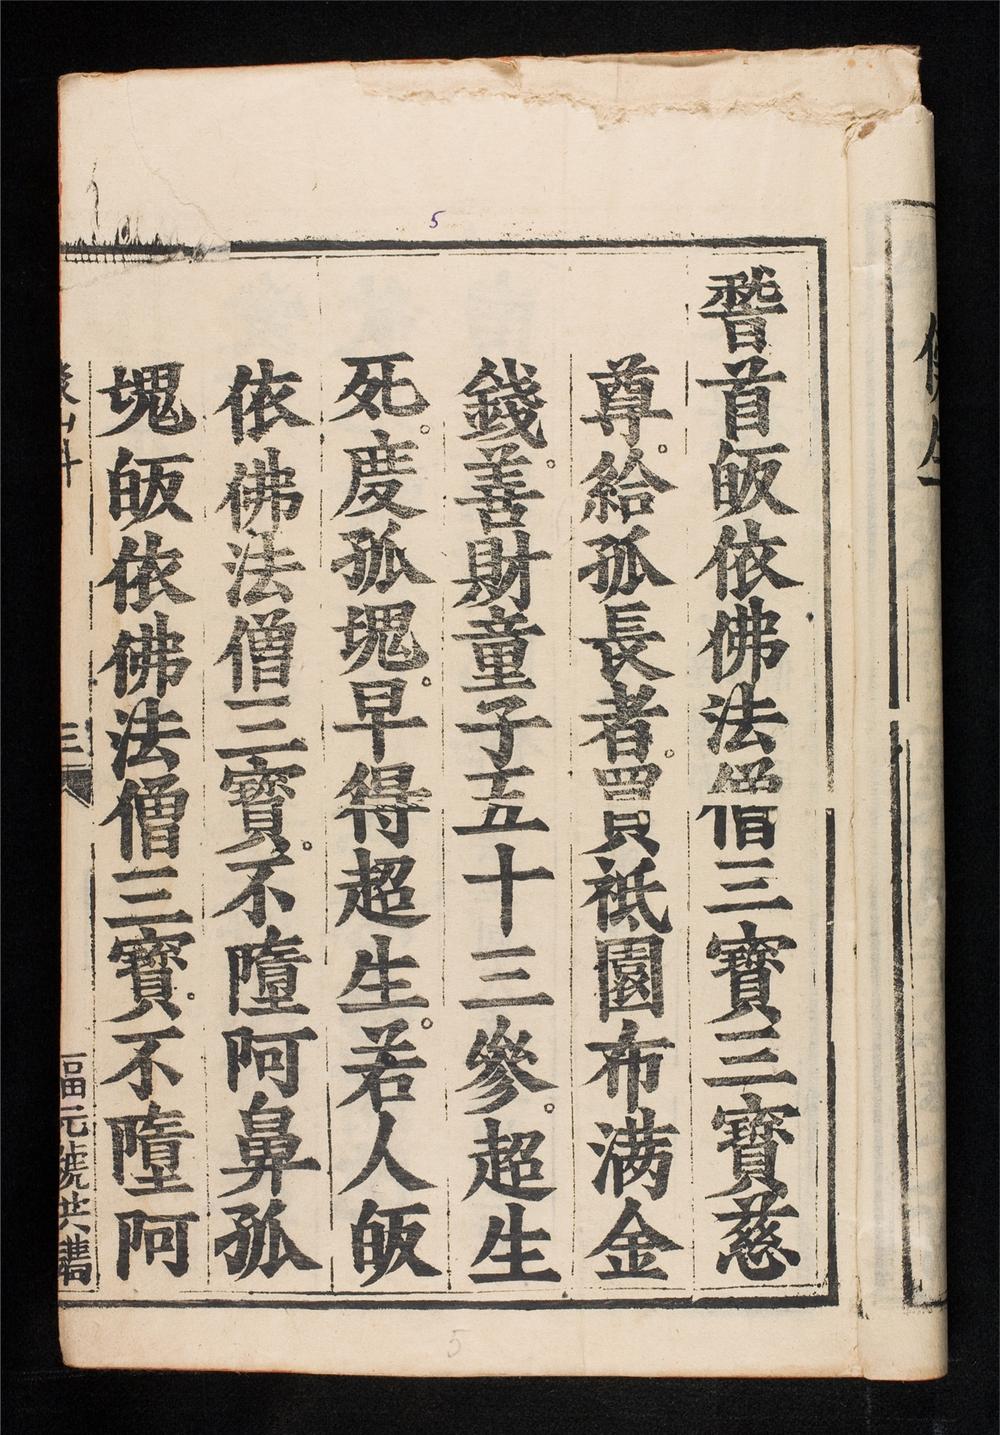 5
稽首皈依佛法僧三寶三寶慈
尊。給孤長者。買祇園布满金
錢。善財童子五十三參。超生
死。度孤塊。早得超生。若人皈
依佛法僧三寶。不墮阿鼻孤
塊皈依佛法僧三寶。不墮阿
三
福元號共譜
5